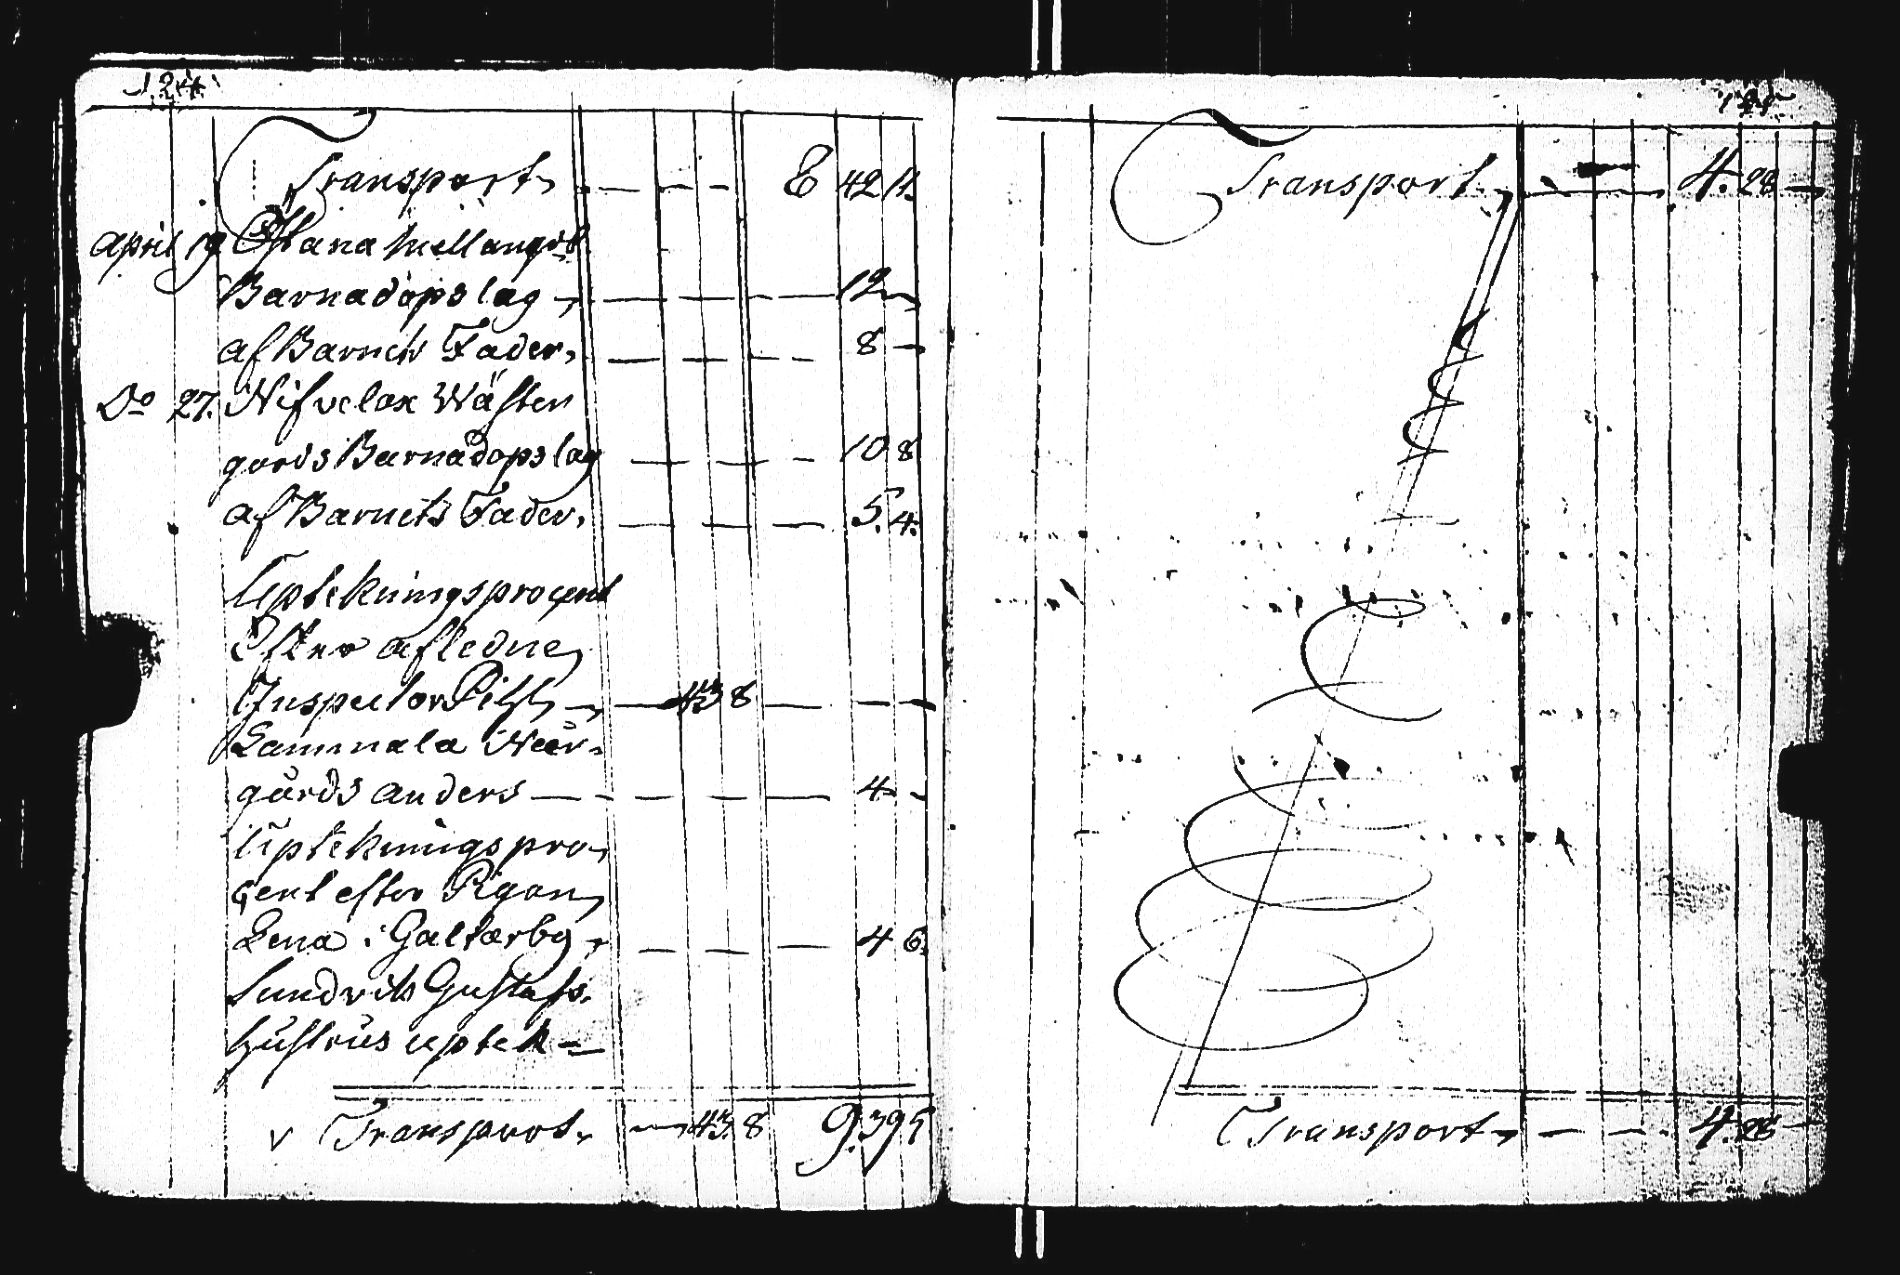 124.
Transport, 8 42 11.
April 19 Östana Mellangds
Barnadopslag 12
af Barnets Fader, 8
Do 27. Nifvelax Wästen
gårds Barnadopslag 10 8
af Barnets Fader, 5. 4.
Uptekningsprocent
Efter afledne
Inspector Pihl, 43 8
Lammala
gårds Anders 4
Uptekningspro-
cent efter Pigan
Lena i Galtarby 4 6.
Sundvik Gustafs
hustrus uptek-
Transport, 43. 8 9. 39 5
125
Transport 4. 28
Transport, 4. 28